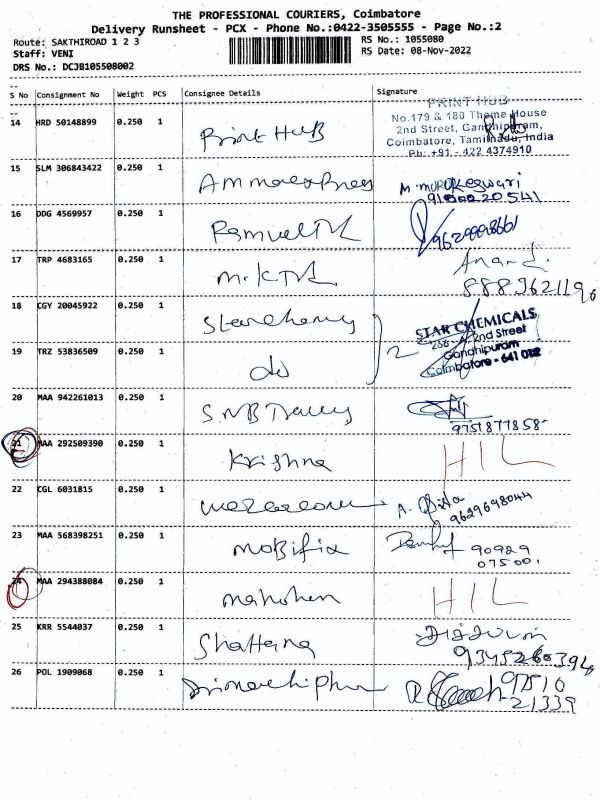 THE PROFESSIONAL COURIERS, Coimbatore
Delivery Runsheet - PCX - Phone No.:0422-3505555 - Page No.:2
Route: SAKTHIROAD 1 2 3
Staff: VENI
DRS No.: DCJB105508002
RS No.: 1055080
RS Date: 08-Nov-2022
S No Consignment No Weight PCS Consignee Details Signature
14 HRD 50148899 0.250 1 Print HUB
PRINT HUB
No.179 & 180 Theme House
2nd Street, Gandhipuram,
Coimbatore, Tamilnadu, India
Ph: +91 - 422 4374910
15 SLM 306843422 0.250 1
16 DDG 4569957 0.250 1
17 TRP 4683165 0.250 1 Anand.
8883621196
18 CGY 20045922 0.250 1
19 TRZ 53836509 0.250 1 do 2
STAR CHEMICALS
266 - A, 2nd Street
Gandhipuram
Coimbatore - 641 012
20 MAA 942261013 0.250 1
9751877858
21 MAA 292509390 0.250 1 Krishna HIL
22 CGL 6031815 0.250 1
9629698044
23 MAA 568398251 0.250 1 Mobifix 90929
07500
24 MAA 294388084 0.250 1 HIL
25 KRR 5544037 0.250 1
9345260394
26 POL 1909068 0.250 1 97510
21339